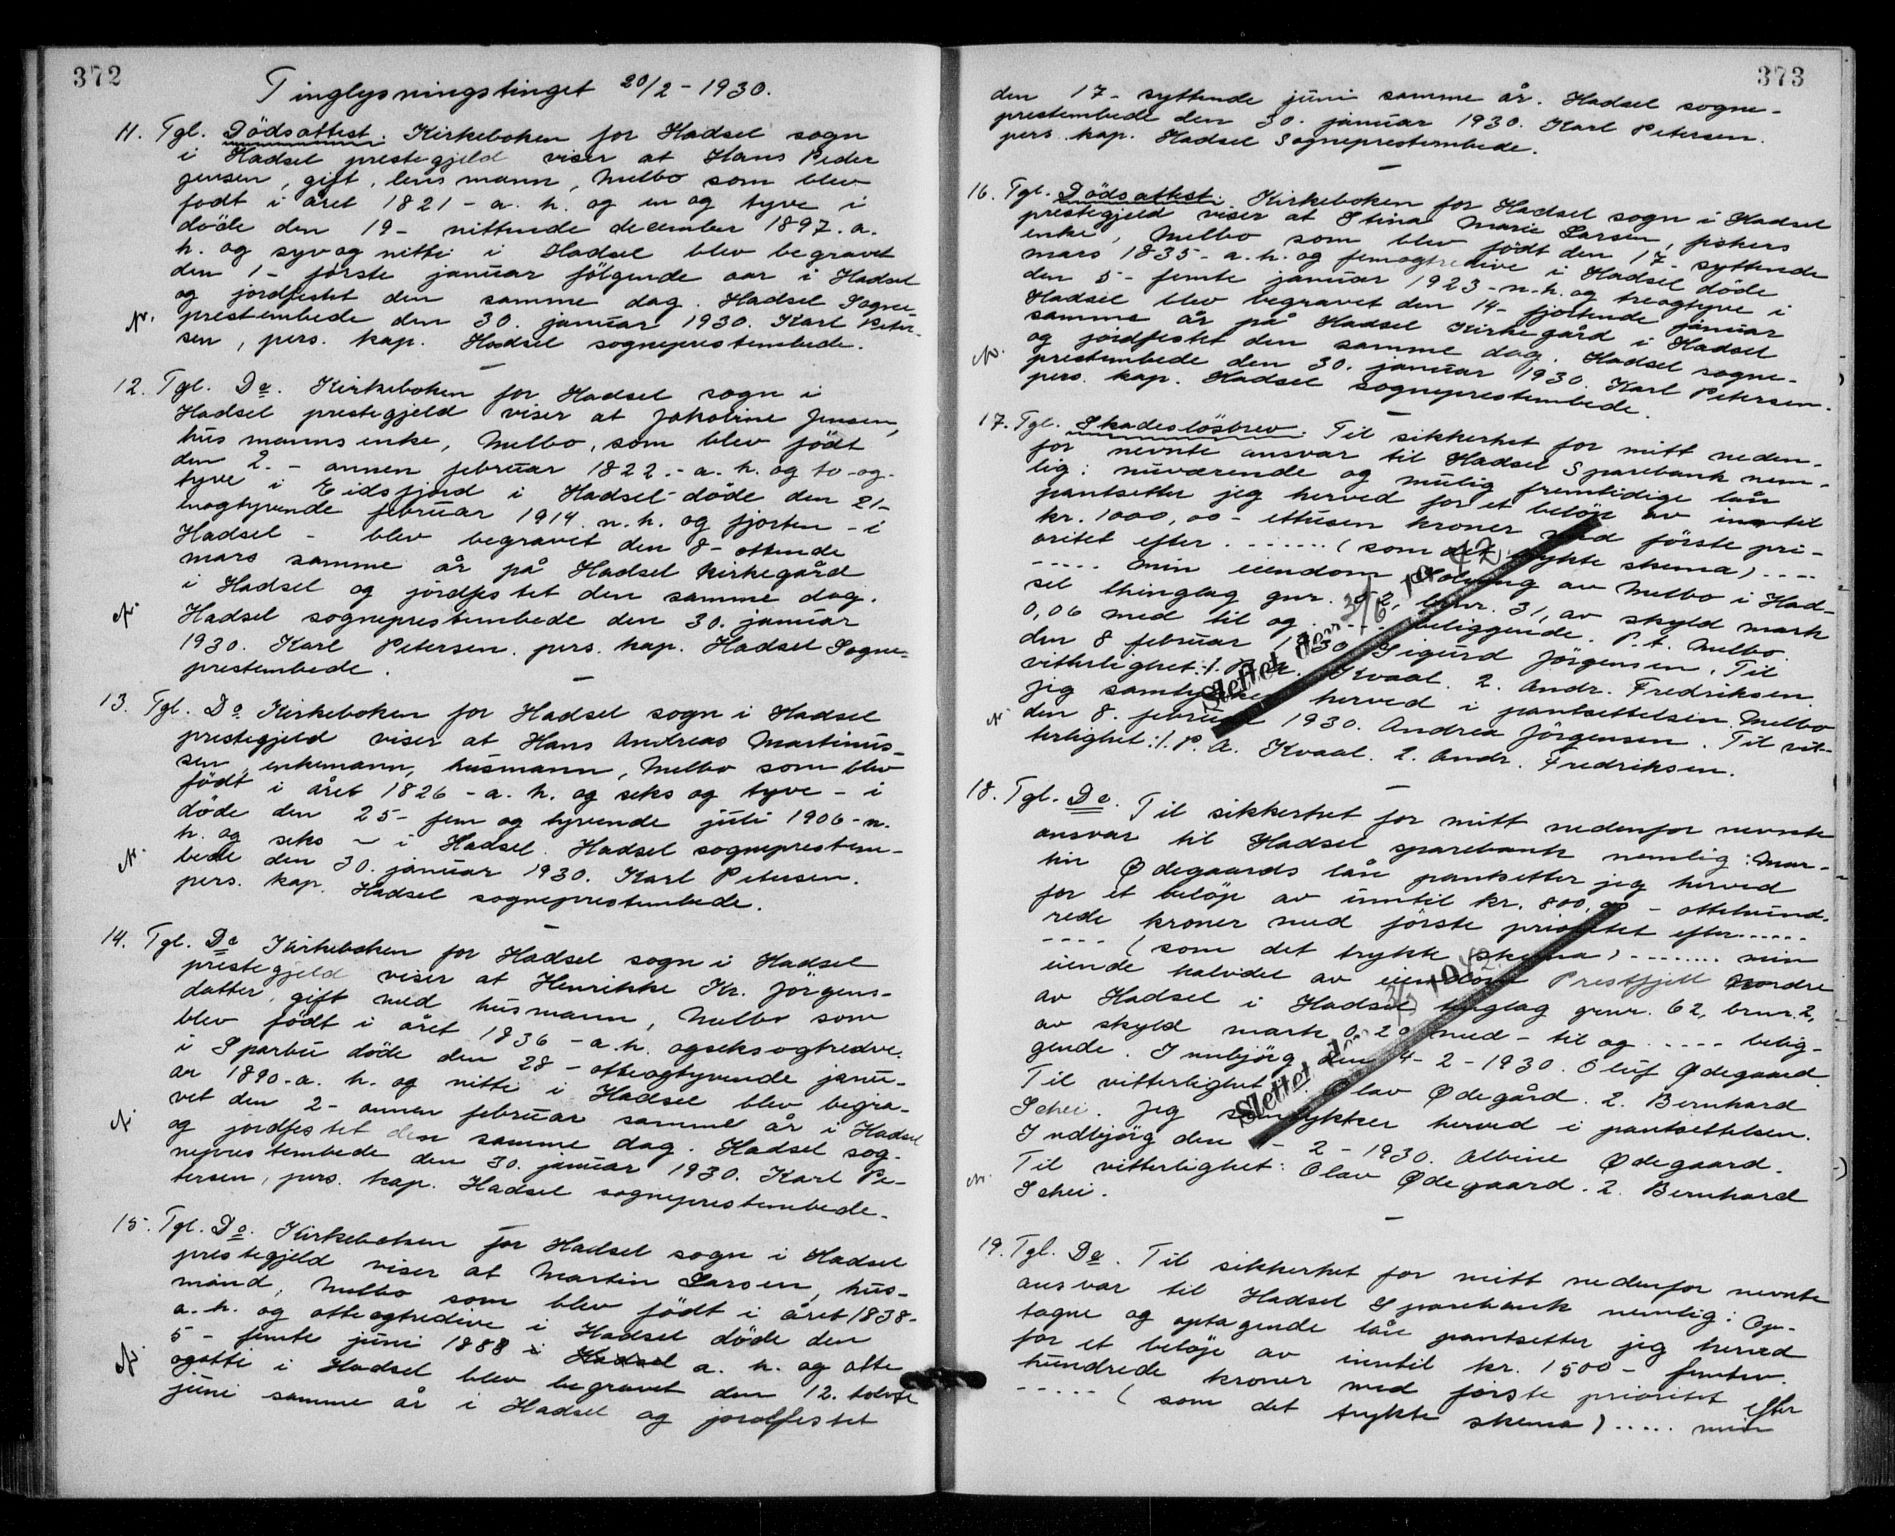 372
Tinglysningstinget 20/2 - 1930.
11. Tgl. Dödsattest. Kirkeboken for Hadsel sogn
i Hadsel prestegjeld viser at Hans Peder
Jensen, gift, lensmann, Melbo som blev
født i året 1821 - a. h. og en og tyve i
døde den 19 - nittende december 1897. a.
h. og syv og nitti i Hadsel blev begravet
den 1 - første januar følgende aar i Hadsel
og jordfestet den samme dag. Hadsel Sogne-
prestembede den 30. januar 1930. Karl Peter-
sen, pers. kap. Hadsel sogneprestembede.
12. Tgl. Do. Kirkeboken for Hadsel sogn i
Hadsel prestegjeld viser at Jakoline Jensen,
husmanns enke, Melbo, som blev født
den 2. - annen februar 1822. - a. h. og to-og-
tyve i Eidsfjord i Hadsel - døde den 21-
enogtyvende februar 1914. n. h. og fjorten - i
Hadsel - blev begravet den 8 - ottende
mars samme år på Hadsel kirkegård
i Hadsel og jordfestet den samme dag.
Hadsel sogneprestembede den 30. januar
1930. Karl Petersen. pers. kap. Hadsel Sogne-
prestembede.
13. Tgl. Do Kirkeboken for Hadsel sogn i Hadsel
prestegjeld viser at Hans Andreas Martinus-
sen, enkemann, husmann, Melbo som blev
født i året 1826 - a. h. og seks og tyve - i
døde den 25 - fem og tyvende juli 1906 - n.
h. og seks - i Hadsel. Hadsel sogneprestem-
bede den 30. januar 1930. Karl Petersen.
pers. kap. Hadsel sogneprestembede.
14. Tgl. Do Kirkeboken for Hadsel sogn i Hadsel
prestegjeld viser at Henrikke Kr. Jörgens-
datter, gift med husmann, Melbo som
blev født i året 1836 - a. h. og seksogtredve.
i Sparbu døde den 28 - otteogtyvende janu-
ar 1890. a. h. og nitti i Hadsel blev begra-
vet den 2 - annen februar samme år i Hadsel
og jordfestet den samme dag. Hadsel sog-
neprestembede den 30. januar 1930. Karl Pe-
tersen, pers. kap. Hadsel sogneprestembede.
15. Tgl. Do. Kirkeboken for Hadsel sogn i Hadsel
prestegjeld viser at Martin Larsen, hus-
mand, Melbo som blev født i året 1838-
a. h. og otteogtredive i Hadsel døde den
5 - femte juni 1888 i Hadsel a. h. og otte
ogotti i Hadsel blev begravet den 12. tolvte
juni samme år i Hadsel og jordfestet
373
den 17 - syttende juni samme år. Hadsel sogne-
prestembede den 30. januar 1930. Karl Petersen.
pers. kap. Hadsel Sogneprestembede.
16. Tgl. Dödsattest. Kirkeboken for Hadsel sogn i Hadsel
prestegjeld viser at Stina Marie Larsen, fiskers
enke, Melbo som blev født den 17 - syttende
mars 1835 - a. h. og femogtredive i Hadsel døde
den 5 - femte januar 1923 - n. h. og treogtyve i
Hadsel blev begravet den 14 - fjortende januar
samme år på Hadsel Kirkegård i Hadsel
og jordfestet den samme dag. Hadsel sogne-
prestembede den 30. januar 1930. Karl Petersen.
pers. kap. Hadsel sogneprestembede.
17. Tgl. Skadeslösbrev. Til sikkerhet for mitt neden-
for nevnte ansvar til Hadsel Sparebank nem-
lig: nuværende og mulig fremtidige lån
pantsetter jeg herved for et beløp av inntil
kr. 1000,00 - ettusen kroner med første pri-
oritet efter ...... (som det trykte skema) ....
..... min eiendom Solvang av Melbo i Had-
sel thinglag gnr. 62, brnr. 31, av skyld mark
0,06 med til og ..... beliggende. P. t. Melbo.
den 8 februar 1930. Sigurd Jörgensen. Til
vitterlighet: 1. P. A. Kvaal. 2. Andr. Fredriksen.
Jeg samtykker herved i pantsettelsen. Melbo
den 8. februar 1930. Andrea Jörgensen. Til vit-
terlighet: 1. P. A. Kvaal. 2. Andr. Fredriksen.
Slettet den 30/6 1942
18. Tgl. Do. Til sikkerhet for mitt nedenfor nevnte
ansvar til Hadsel sparebank nemlig: Mar-
tin Ødegaards lån pantsetter jeg herved
for et beløp av inntil kr. 800,00 - ottehund-
rede kroner med første prioritet efter ......
.... (som det trykte skema) ........ min
eiende halvdel av eiendom Prestfjell Nordre
av Hadsel i Hadsel tinglag grnr. 62, brnr. 2,
av skyld mark 0,20 med - til og ..... belig-
gende. Innbjörg den 4 - 2 - 1930. Oluf Ødegaard.
Til vitterlighet: Olav Ødegård. 2. Bernhard
Schei. Jeg samtykker herved i pantsettelsen.
Indbjörg den - 2 - 1930. Albine Ødegaard.
Til vitterlighet: Olav Ødegaard. 2. Bernhard
Schei.
Slettet den 1942
19. Tgl. Do. Til sikkerhet for mitt nedenfor nevnte
ansvar til Hadsel Sparebank nemlig: Op-
tagne og optagende lån pantsetter jeg herved
for et beløp av inntil kr. 1500 - femten-
hundrede kroner med første prioritet efter
..... (som det trykte skema) ..... min